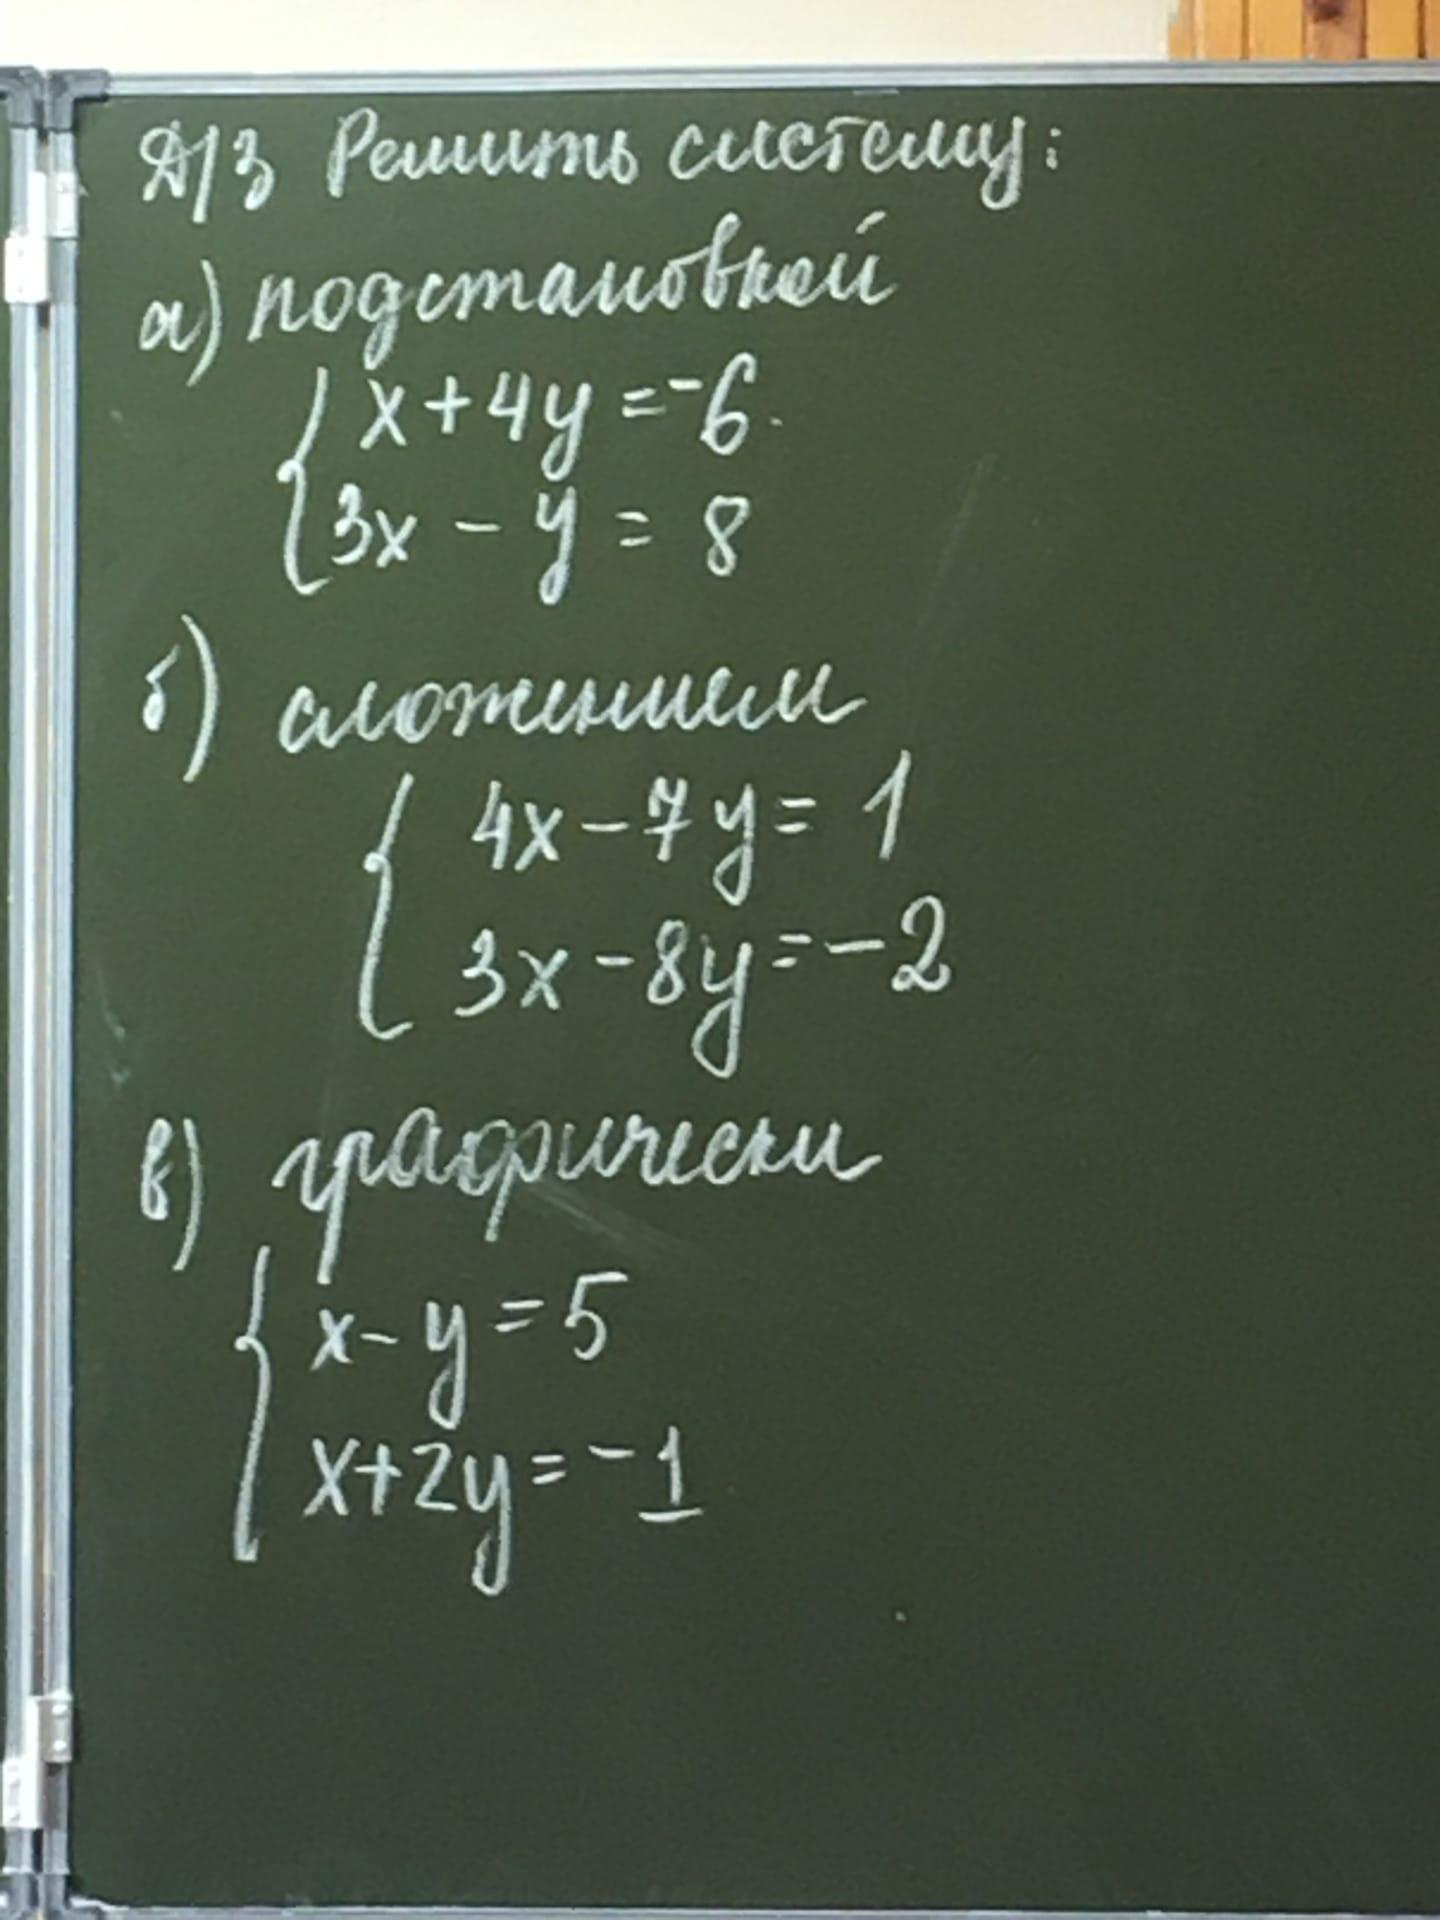 Д/З Решить систему:
а) подстановкой
x+4y=-6
3x-y=8
б) сложением
4x-7y=1
3x-8y=-2
в) графически
x-y=5
x+2y=-1